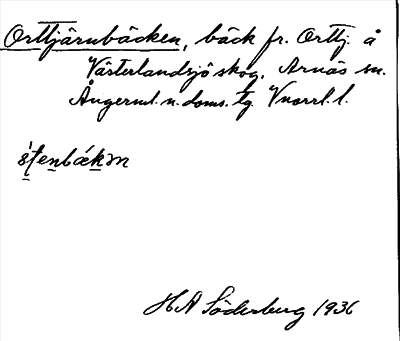 Orttjärnbäcken, bäck fr. Orttj. å
Västerlandsjö skog, Arnäs sn.
Ångerml. n. doms. tg. Vnorrl. l.
stenbäkm
H A Söderberg 1936